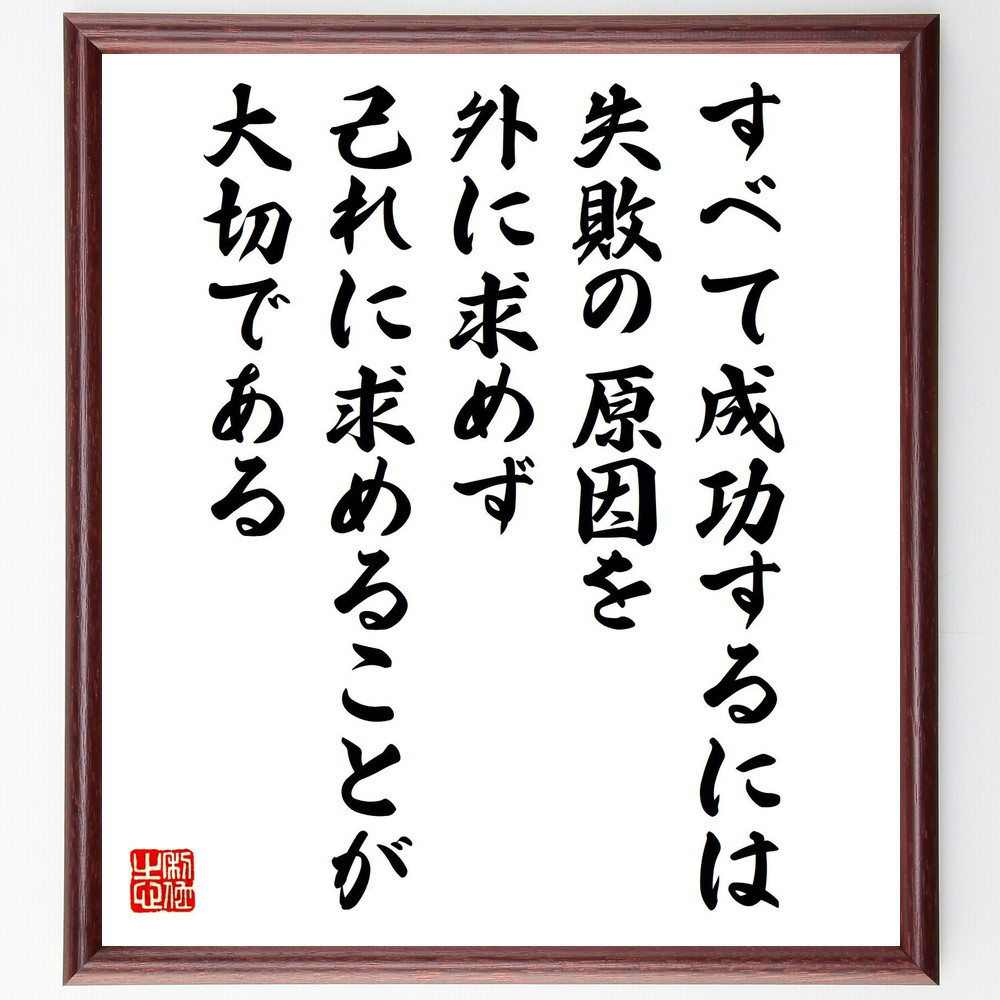 すべて成功するには
失敗の原因を
外に求めず
己れに求めることが
大切である